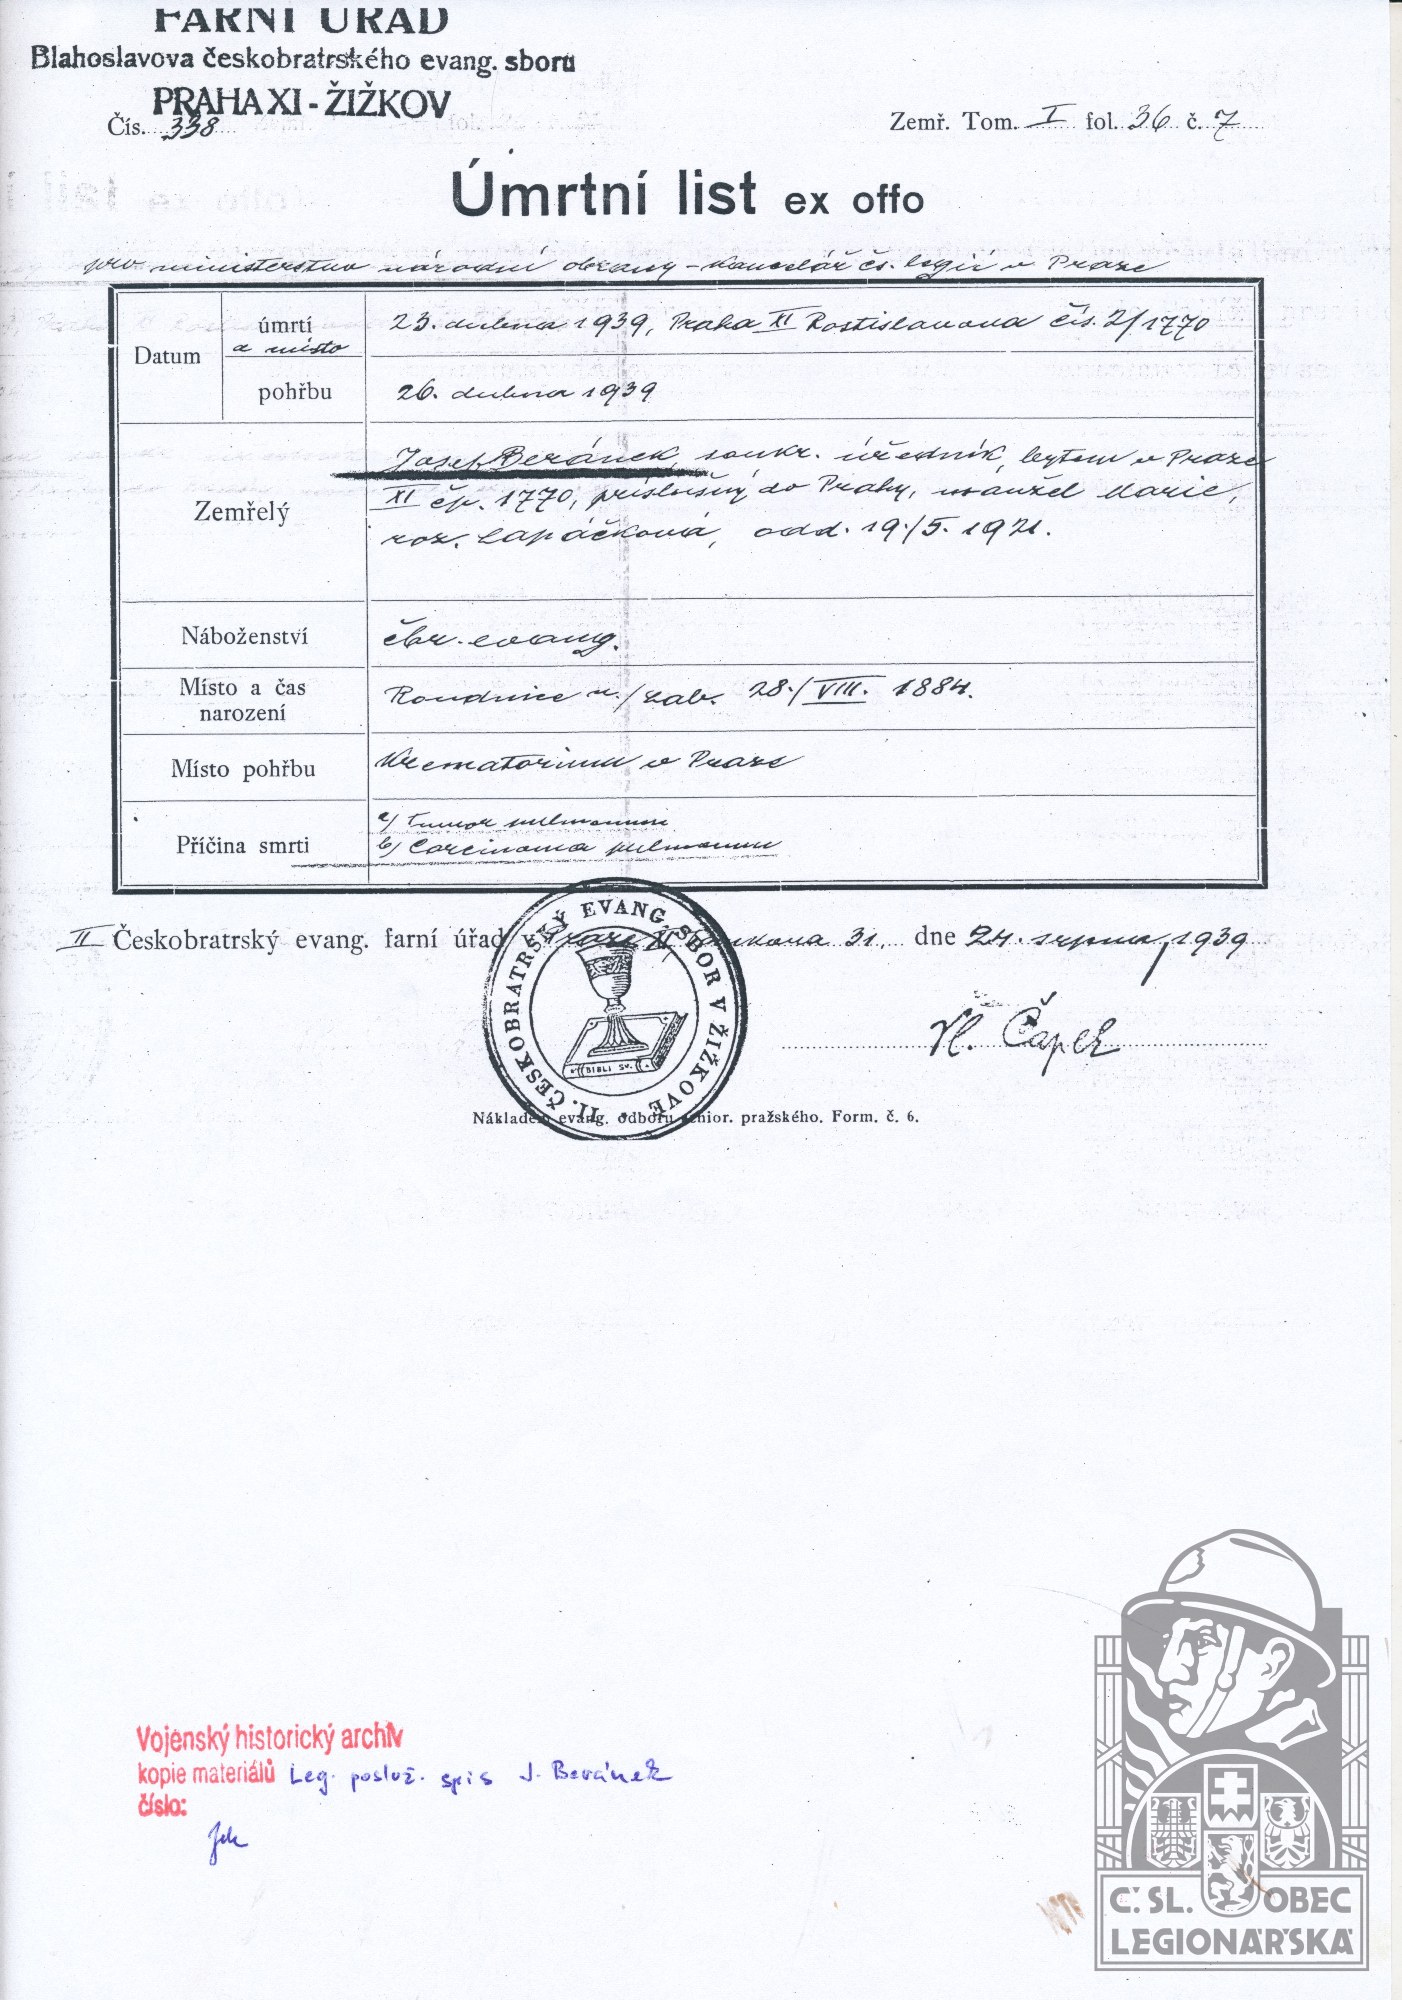 FARNÍ ÚŘAD
Blahoslavova českobratrského evang. sboru
PRAHA XI - ŽIŽKOV
Čís. 338
Zemř. Tom. I fol. 36 č. 7
Úmrtní list ex offo
pro ministerstvo národní obrany - kancelář čs. legií v Praze
Datum
úmrtí
a místo
23. dubna 1939, Praha XI Rostislavova čís. 2/1770
pohřbu
26. dubna 1939
Zemřelý
Josef Beránek, soukr. úředník, bytem v Praze
XI čp. 1770, příslušný do Prahy, manžel Marie,
roz. Lapáčková, odd. 19./5. 1921.
Náboženství
čbr. evang.
Místo a čas
narození
Roudnice n./Lab. 28./VIII. 1884.
Místo pohřbu
Krematorium v Praze
Příčina smrti
a) Tumor pulmonum
b) Carcinoma pulmonum
II Českobratrský evang. farní úřad v Praze XI 31, dne 24. srpna 1939
II. ČESKOBRATRSKÝ EVANG. SBOR V ŽIŽKOVĚ
BIBLI SV.
Vl. Čapek
Nákladem evang. odboru senior. pražského. Form. č. 6.
Vojenský historický archiv
kopie materiálů Leg. posluž. spis J. Beránek
číslo:
Č. SL. OBEC
LEGIONÁŘSKÁ